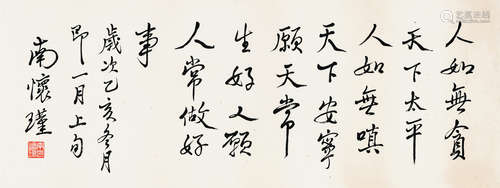 人如無貪
天下太平
人如無嗔
天下安寧
願天常
生好人願
人常做好
事
歲次乙亥冬月
即一月上旬
南懷瑾